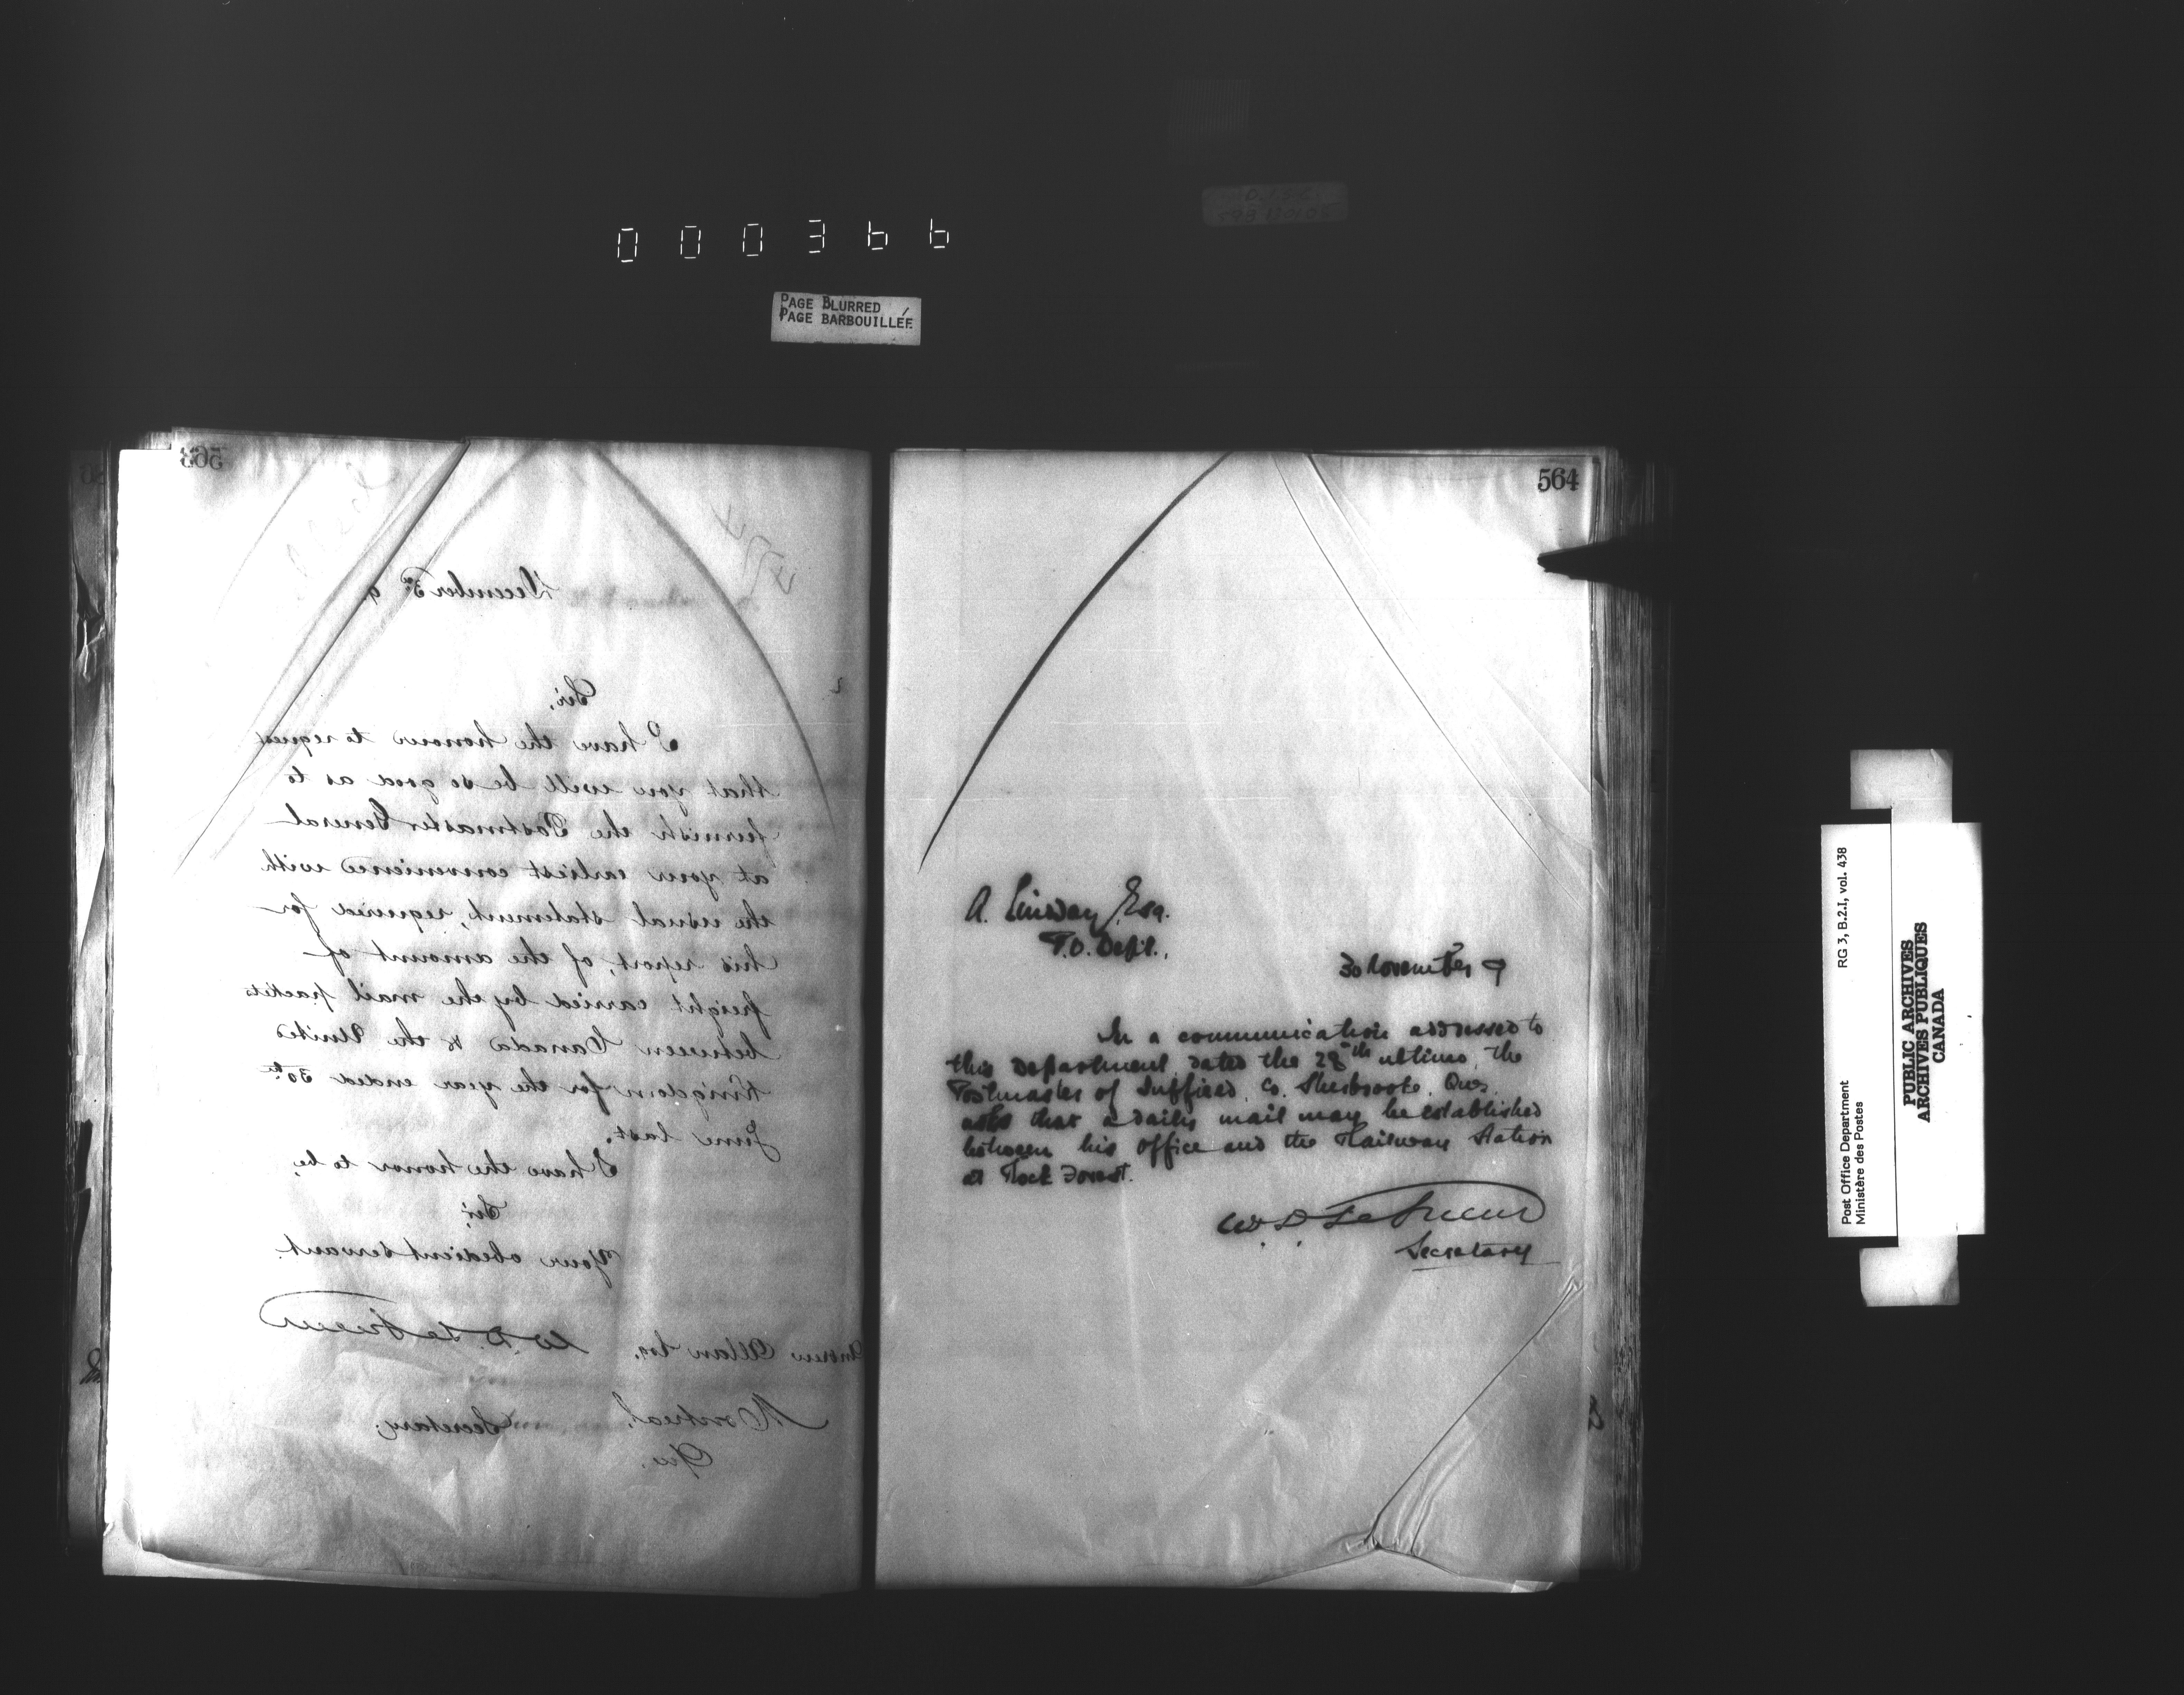 000366
PAGE BLURRED
PAGE BARBOUILLÉE
563
December 3rd 9
Sir,
I have the honour to request
that you will be so good as to
furnish the Postmaster General
at your earliest convenience with
the usual statement, required for
his report, of the amount of
freight carried by the mail packets
between Canada & the United
Kingdom for the year ended 30th
June last.
I have the honor to be,
Sir,
Your obedient servant
W. D. LeSueur
Andrew Allan Esq.
Secretary.
Montreal,
Que.
564
A. Lindsay, Esq.
P.O. Dept.,
30 November 9
In a communication addressed to
this Department dated the 28th ultimo, the
Postmaster of Suffield, Co. Sherbrooke, Que.
asks that a daily mail may be established
between his office and the Railway Station
at Rock Forest.
W. D. LeSueur
Secretary
Post Office Department RG 3, B.2.I, vol. 438
Ministère des Postes
PUBLIC ARCHIVES
ARCHIVES PUBLIQUES
CANADA